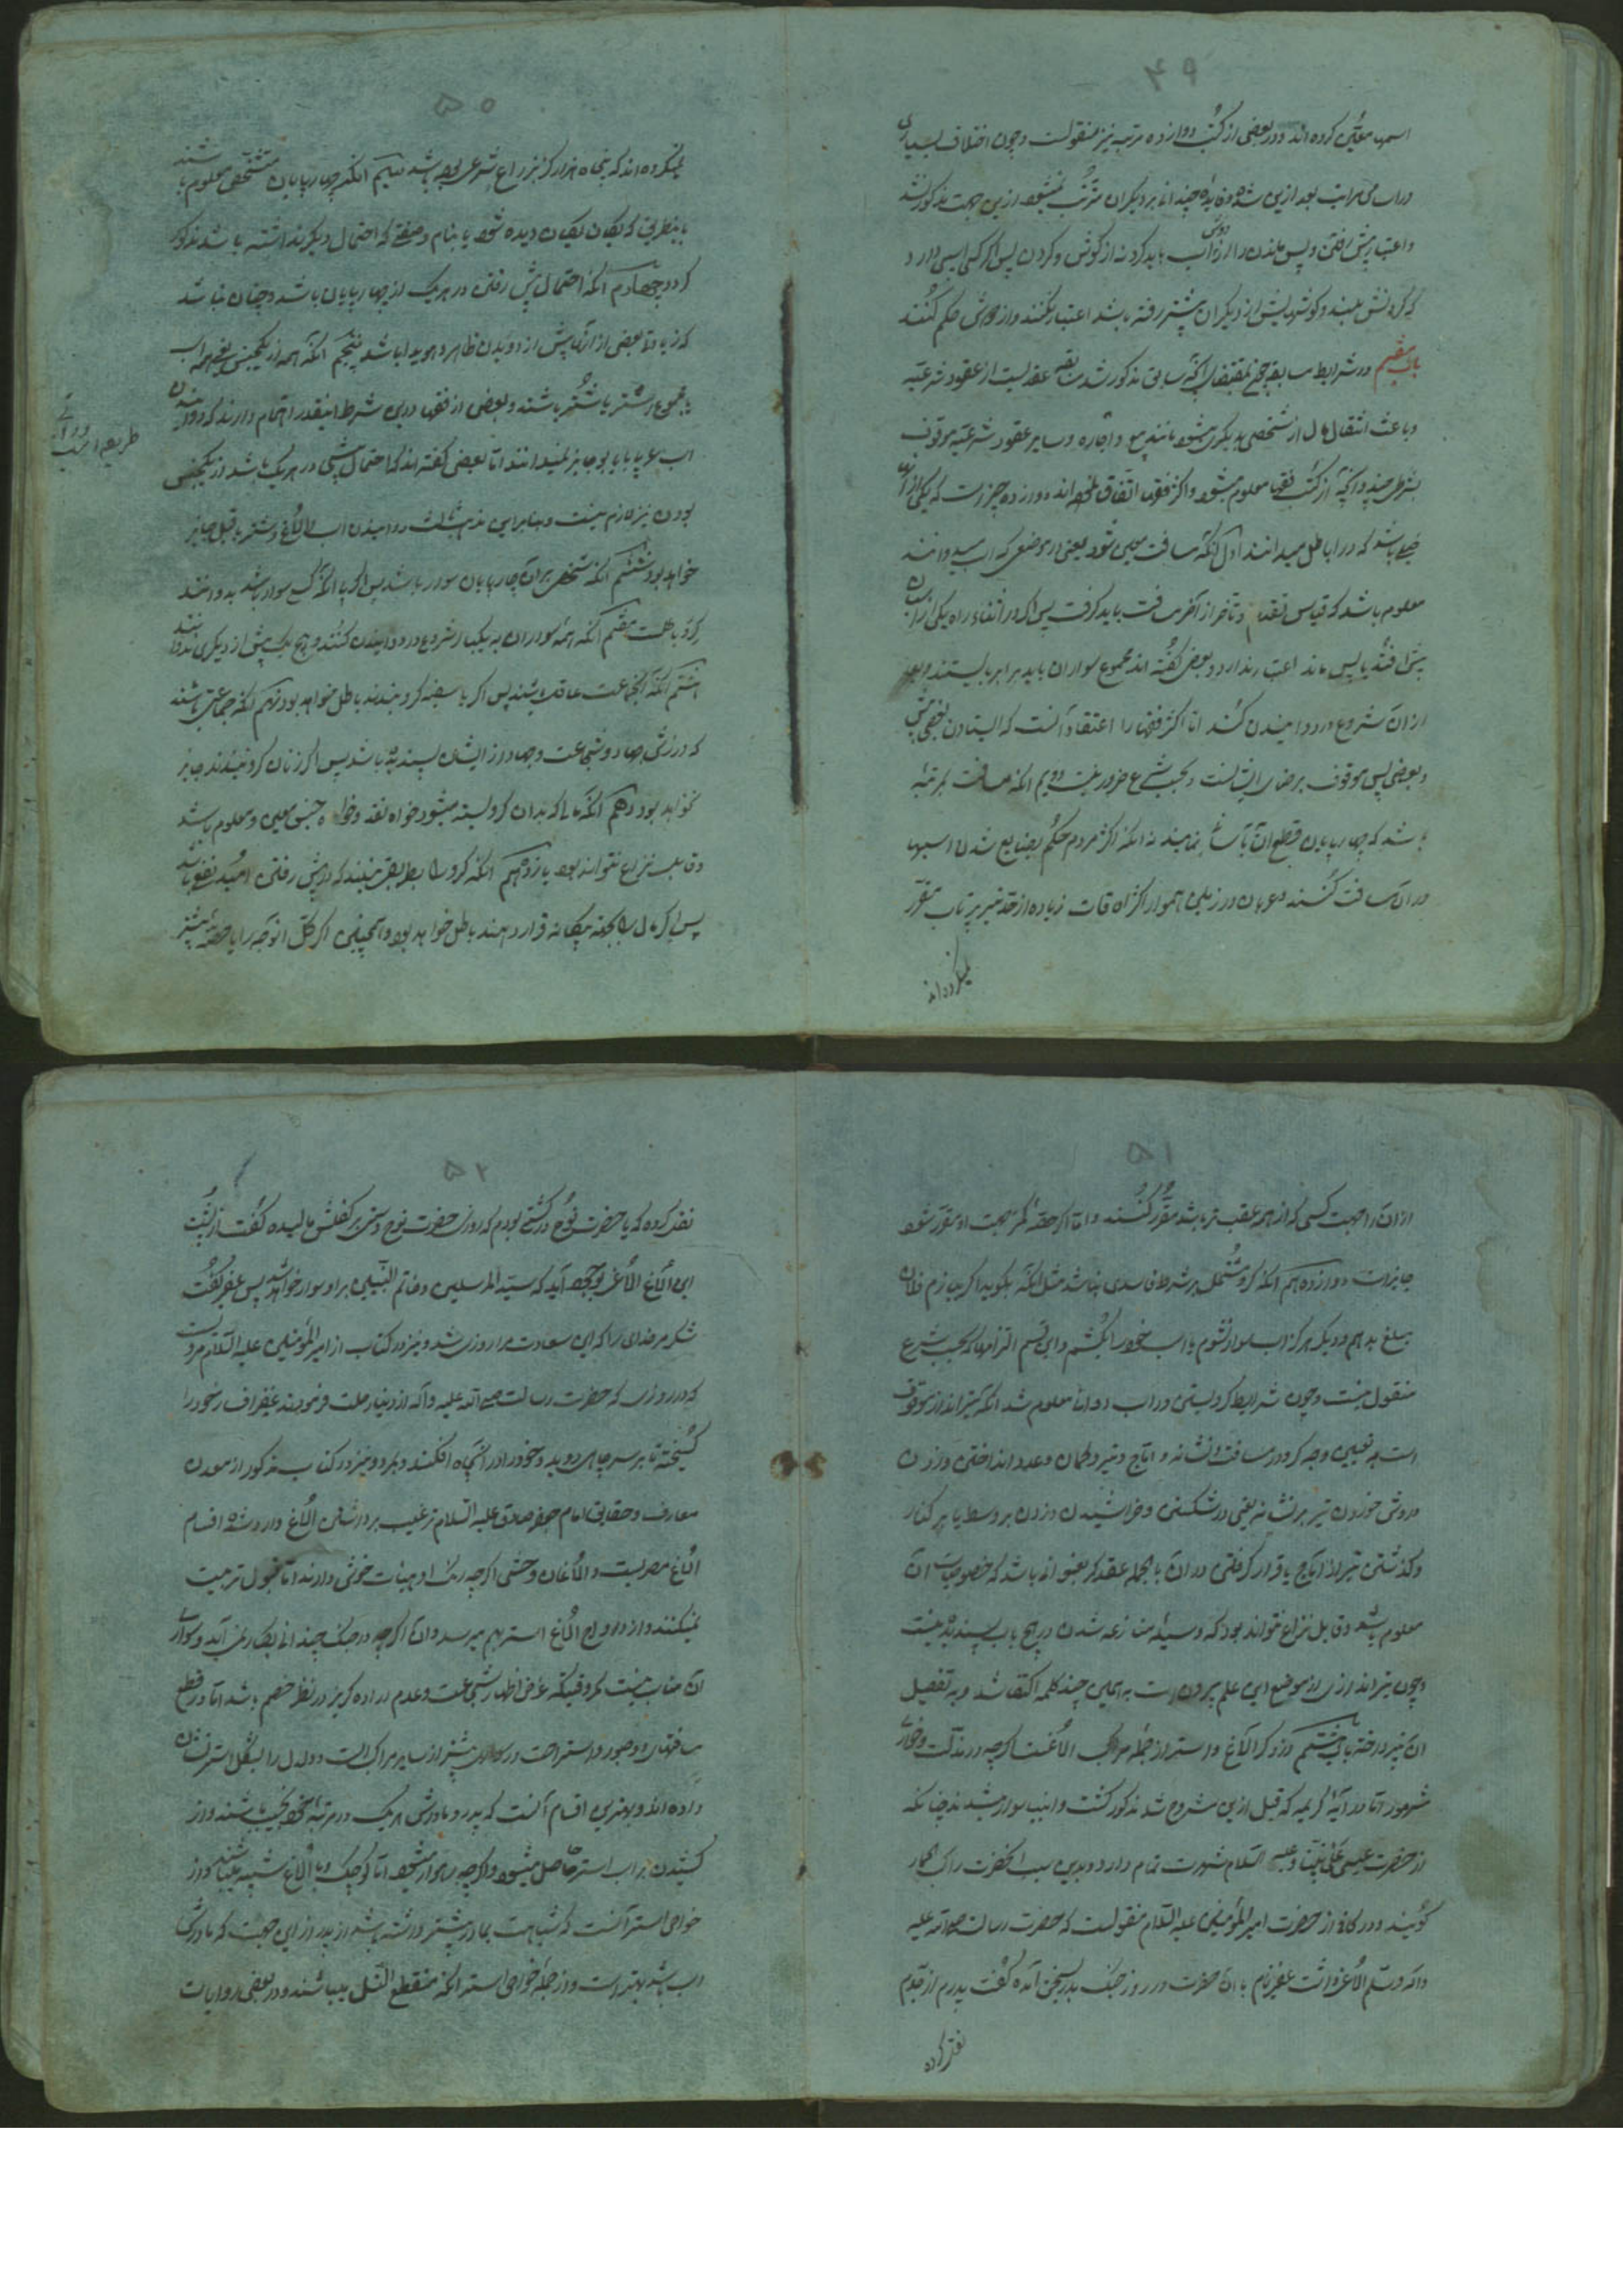 ۴۹
اسمها معیّن کرده‌اند و در بعضی از کتب دوازده مرتبه نیز منقولست و چون اختلاف بسیاری
در اسامی مراتب بعد ازین شده و فایدهٔ چندان بر دیگران مترتّب نمیشود ازین جهت مذکور نشد
و اعتبار پیش رفتن و پس ماندن را از دوش اسب باید کرد نه از گوش و گردن پس اگر کسی اسبی دارد
که گردنش بلند و گوشهایش از دیگران پیشتر رفته باشد اعتبار نکنند و از دوش حکم کنند
باب هفتم در شرایط سابقه چنانچه بمقتضای آنچه سابق مذکور شد سابقه عقدیست از عقود شرعیّه
و باعث انتقال مال از شخصی بدیگری میشود مانند بیع و اجاره و سایر عقود شرعیّه موقوف
بشرطی چند و آنچه از کتب فقها معلوم میشود و اکثر فقها اتفاق نموده‌اند دوازده چیز است که یکی از آن
باشد که در را باطل میدانند اول آنکه مسافت معین شود یعنی در موضعی که اسب میدوانند
معلوم باشد که قیاس تقدم و تأخر از آخر مسافت باید گرفت پس اگر در اثناء راه یکی از اسبان
پیش افتد یا پس ماند اعتبار ندارد و بعضی گفته‌اند مجموع سواران باید برابر بایستند و بعد
از آن شروع در دوانیدن کنند امّا اکثر فقها را اعتقاد آنست که ایستادن بعضی پیش
و بعضی پس موقوف برضای ایشانست و بحسب شرع ضرور نیست دویم آنکه مسافت بمرتبهٔ
باشد که چهارپایان قطع آن توانند نمود نه آنکه اکثر مردم حکم بضایع شدن اسبها
در آن مسافت کنند و عربان در زمین هموار اکثر اوقات زیاده از صد تیر پرتاب مقرّر
نمیکرده‌اند
۵۰
نمیکرده‌اند که پنجاه هزار گز بزراع شرعی بوده باشد سیّم آنکه چهارپایان مشخّص و معلوم باشند
باینطریق که یکان یکان دیده شود یا بنام و صفتی که احتمال دیگر نداشته باشد مذکور
گردد چهارم آنکه احتمال پیش رفتن در هر یک از چهارپایان باشد و چنان نباشد
که زیادتی بعضی از آن پیش از دویدن ظاهر و هویدا باشد پنجم آنکه همه از یکجنس یعنی همه اسب
یا مجموع استر یا شتر باشند و بعضی از فقها درین شرط اینقدر اهتمام دارند که دوانیدن
اسب عربی با یابو جایز نمیدانند امّا بعضی گفته‌اند که احتمال پیشی در هر یک باشد از یکجنس
بودن نیز لازم نیست و بنابراین مذهب است دوانیدن اسب با الاغ و شتر با فیل جایز
خواهد بود ششم آنکه شخصی بر آن چارپایان سوار باشد پس اگر بی آنکه کسی سوار باشد بدوانند
گرو باطلست هفتم آنکه همه سواران به یکبار شروع در دوانیدن کنند و هیچ یک پیش از دیگری ندوانند
هشتم آنکه آنجماعت عاقل باشند پس اگر با سفیه گرو بندند باطل خواهد بود نهم آنکه جماعتی باشند
که ورزش جهاد و شجاعت و جهاد از ایشان پسندیده باشد پس اگر زنان گرو بندند جایز
نخواهد بود دهم آنکه مالی که بدان گرو بسته میشود خواه نقد و خواه جنس معین و معلوم باشد
و قابل نزاع نتواند بود یازدهم آنکه گرو را بطریقی بندند که در پیش رفتن امید نفع باشد
پس اگر مال را بجهة بیگانه قرار دهند باطل خواهد بود و همچنین اگر کلّ آنوجه را یا حصّهٔ بیشتر
۵۱
از آن را جهت کسی که از همه عقب تر باشد مقرّر کنند و امّا اگر حصّهٔ کمتر جهت او مقرّر شود
جایز است دوازدهم آنکه گرو مشتمل بر شرط فاسدی نباشد مثل آنکه بگوید اگر ببازم فلان
مبلغ بدهم و دیگر هرگز اسب سوار نشوم یا اسب خود را بکشم و این قسم التزامها که بحسب شرع
منقول نیست و چون شرایط گرو بستن در اسب دوانی معلوم شد آنکه تیراندازی موقوف
است به تعیین وجه گرو و مسافت و نشانه و آماج و تیر و کمان و عدد انداختن و زدن
و روش خوردن تیر بر نشانه یعنی در شکستن و خراشیدن و زدن بر وسط یا بر کنار
و گذشتن تیر از آماج یا قرار گرفتن در آن بالجمله عقد گرو بعنوانی باشد که خصوصیات آن
معلوم باشد و قابل نزاع نتواند بود که وسیلهٔ منازعه شدن در هیچ باب پسندیده نیست
و چون تیراندازی از موضع این علم بیرون است به همین چند کلمه اکتفا شد و به تفصیل
آن نپرداخت باب هشتم در ذکر الاغ و استر از جمله مراکب الاغست اگرچه در مذلّت و خواری
مشهور است امّا در آیهٔ کریمه که قبل ازین مشروح شد مذکور گشت و انبیا سوار میشدند چنانکه
از حضرت عیسی علی نبیّنا و علیه السلام شهرت تمام دارد و بدین سبب آنحضرت را راکب الحمار
گویند و در کافی از حضرت امیرالمؤمنین علیه السّلام منقولست که حضرت رسالت صلی الله علیه
و آله و سلّم الاغی داشت عفیر نام با آن حضرت در روز جنگ بسخن آمده گفت پدرم از جدّم
نقل کرده
۵۲
نقل کرده که با حضرت نوح در کشتی بودم که روزی حضرت نوح دستی بر کفلش مالیده گفت از پشت
این الاغ الاغی بوجود آید که سیّد المرسلین و خاتم النبیین بر او سوار خواهد شد پس عفیر گفت
شکر مر خدای را که این سعادت مرا روزی شد و نیز در کتاب از امیرالمؤمنین علیه السّلام مرویست
که در روزی که حضرت رسالت صلی الله علیه و آله از دنیا رحلت فرمودند عفیر افسار خود را
گسیخته تا بر سر چاهی دوید و خود را در آنچاه افکند و بمرد و نیز در کتاب مذکور از معدن
معارف و حقایق امام جعفر صادق علیه السّلام ترغیب بر داشتن الاغ وارد شده اقسام
الاغ مصریست و الاغان وحشی اگرچه رنگ و هیئات خوش دارند امّا قبول تربیت
نمیکنند و از ازدواج الاغ استر بهم میرسد و آن اگرچه در جنگ چندانی بکار نمی‌آید و سواری
آن مناسب نیست مگر وقتیکه غرض اظهار شجاعت و عدم اراده گریز در نظر خصم باشد امّا در قطع
مسافتهای دور و استراحت راکب بیشتر از سایر مراکب است و دلدل را بشکل استر نشان
داده‌اند و بهترین اقسام آنست که پدر و مادرش هر یک در مرتبهٔ خود نجیب باشند و از
کشیدن بر اسب استر حاصل میشود و اگرچه رهوار میشود امّا کوچک و با الاغ شبیه میباشد و از
خواص استر آنست که شباهت بمادر بیشتر داشته باشد از پدر ازین جهت که مادرش
اسب باشد بهتر است و از جمله خواص استر آنکه منقطع النّسل میباشند و در بعضی روایات